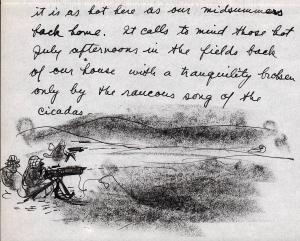 it is as hot here as our midsummers
back home. It calls to mind those hot
July afternoons in the fields back
of our house with a tranquility broken
only by the raucous song of the
cicadas